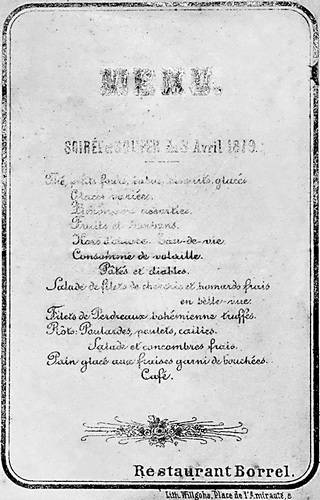 MENU.
SOIRÉE et SOUPER du 3 Avril 1879.
Thé, petits fours, biscuits, glacés
Glaces variées.
assorties.
Fruits et bonbons.
Hors d'œuvre. Eau-de-vie.
Consommé de volaille.
Pâtés et diables.
Salade de filets de chevreuils et homards frais
en belle-vue.
Filets de Perdreaux bohémienne truffés.
Rôts: Poulardes, poulets, cailles.
Salade et concombres frais.
Pain glacé aux fraises garni de bouchées.
Café.
Restaurant Borrel.
Lith. Willgohs, Place de l'Amirauté, 6.